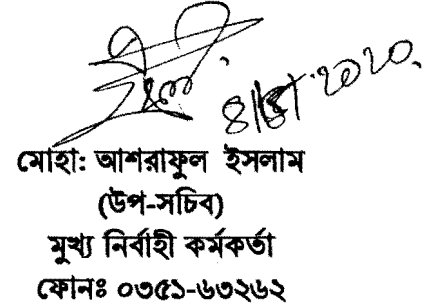 মোহা: আশরাফুল ইসলাম
(উপ-সচিব)
মুখ্য নির্বাহী কর্মকর্তা
ফোনঃ ০৩৫১-৬৩২৬২